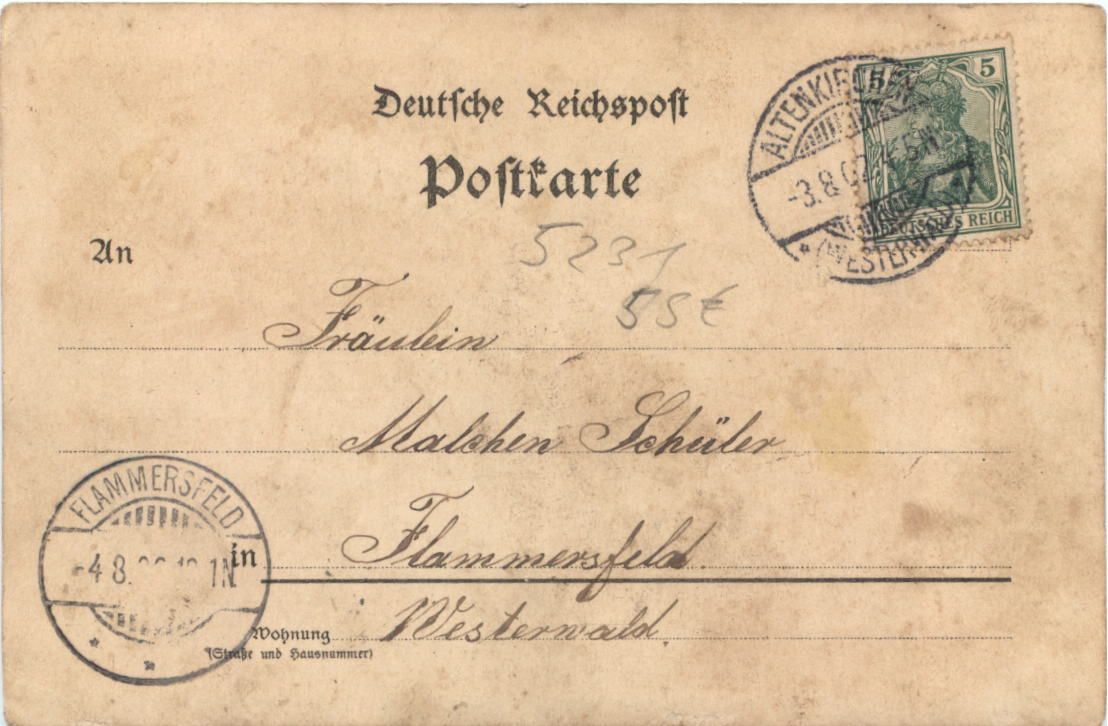 Deutsche Reichspost
Postkarte
ALTENKIRCHEN
-3.8.02
(WESTERWALD)
5 5
DEUTSCHES REICH
An
5231
55€
Fräulein
Malchen Schüler
in Flammersfeld.
Wohnung Westerwald.
(Straße und Hausnummer)
FLAMMERSFELD
-4 8. 1N.